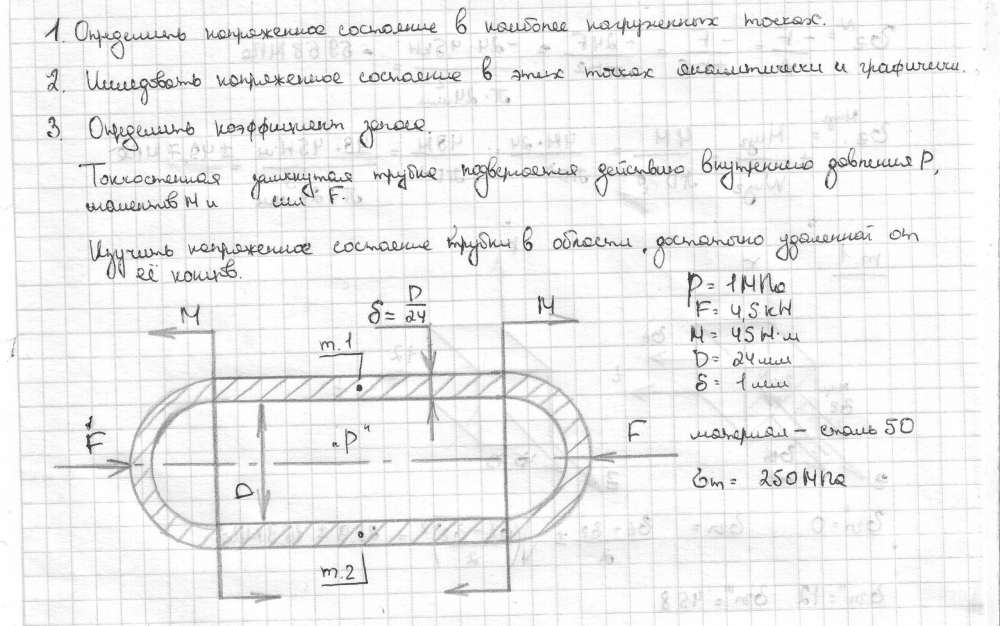 1. Определить напряженное состояние в наиболее нагруженных точках.
2. Исследовать напряженное состояние в этих точках аналитически и графически.
3. Определить коэффициент запаса.
Тонкостенная замкнутая трубка подвергается действию внутреннего давления P,
моментов M и сил F.
Изучить напряженное состояние трубки в области, достаточно удаленной от
её концов.
P = 1МПа
F = 4,5кН
M = 45Н·м
D = 24мм
δ = 1мм
материал – сталь 50
σт = 250МПа
M
δ = D/24
M
т.1
F
„P“
F
D
т.2